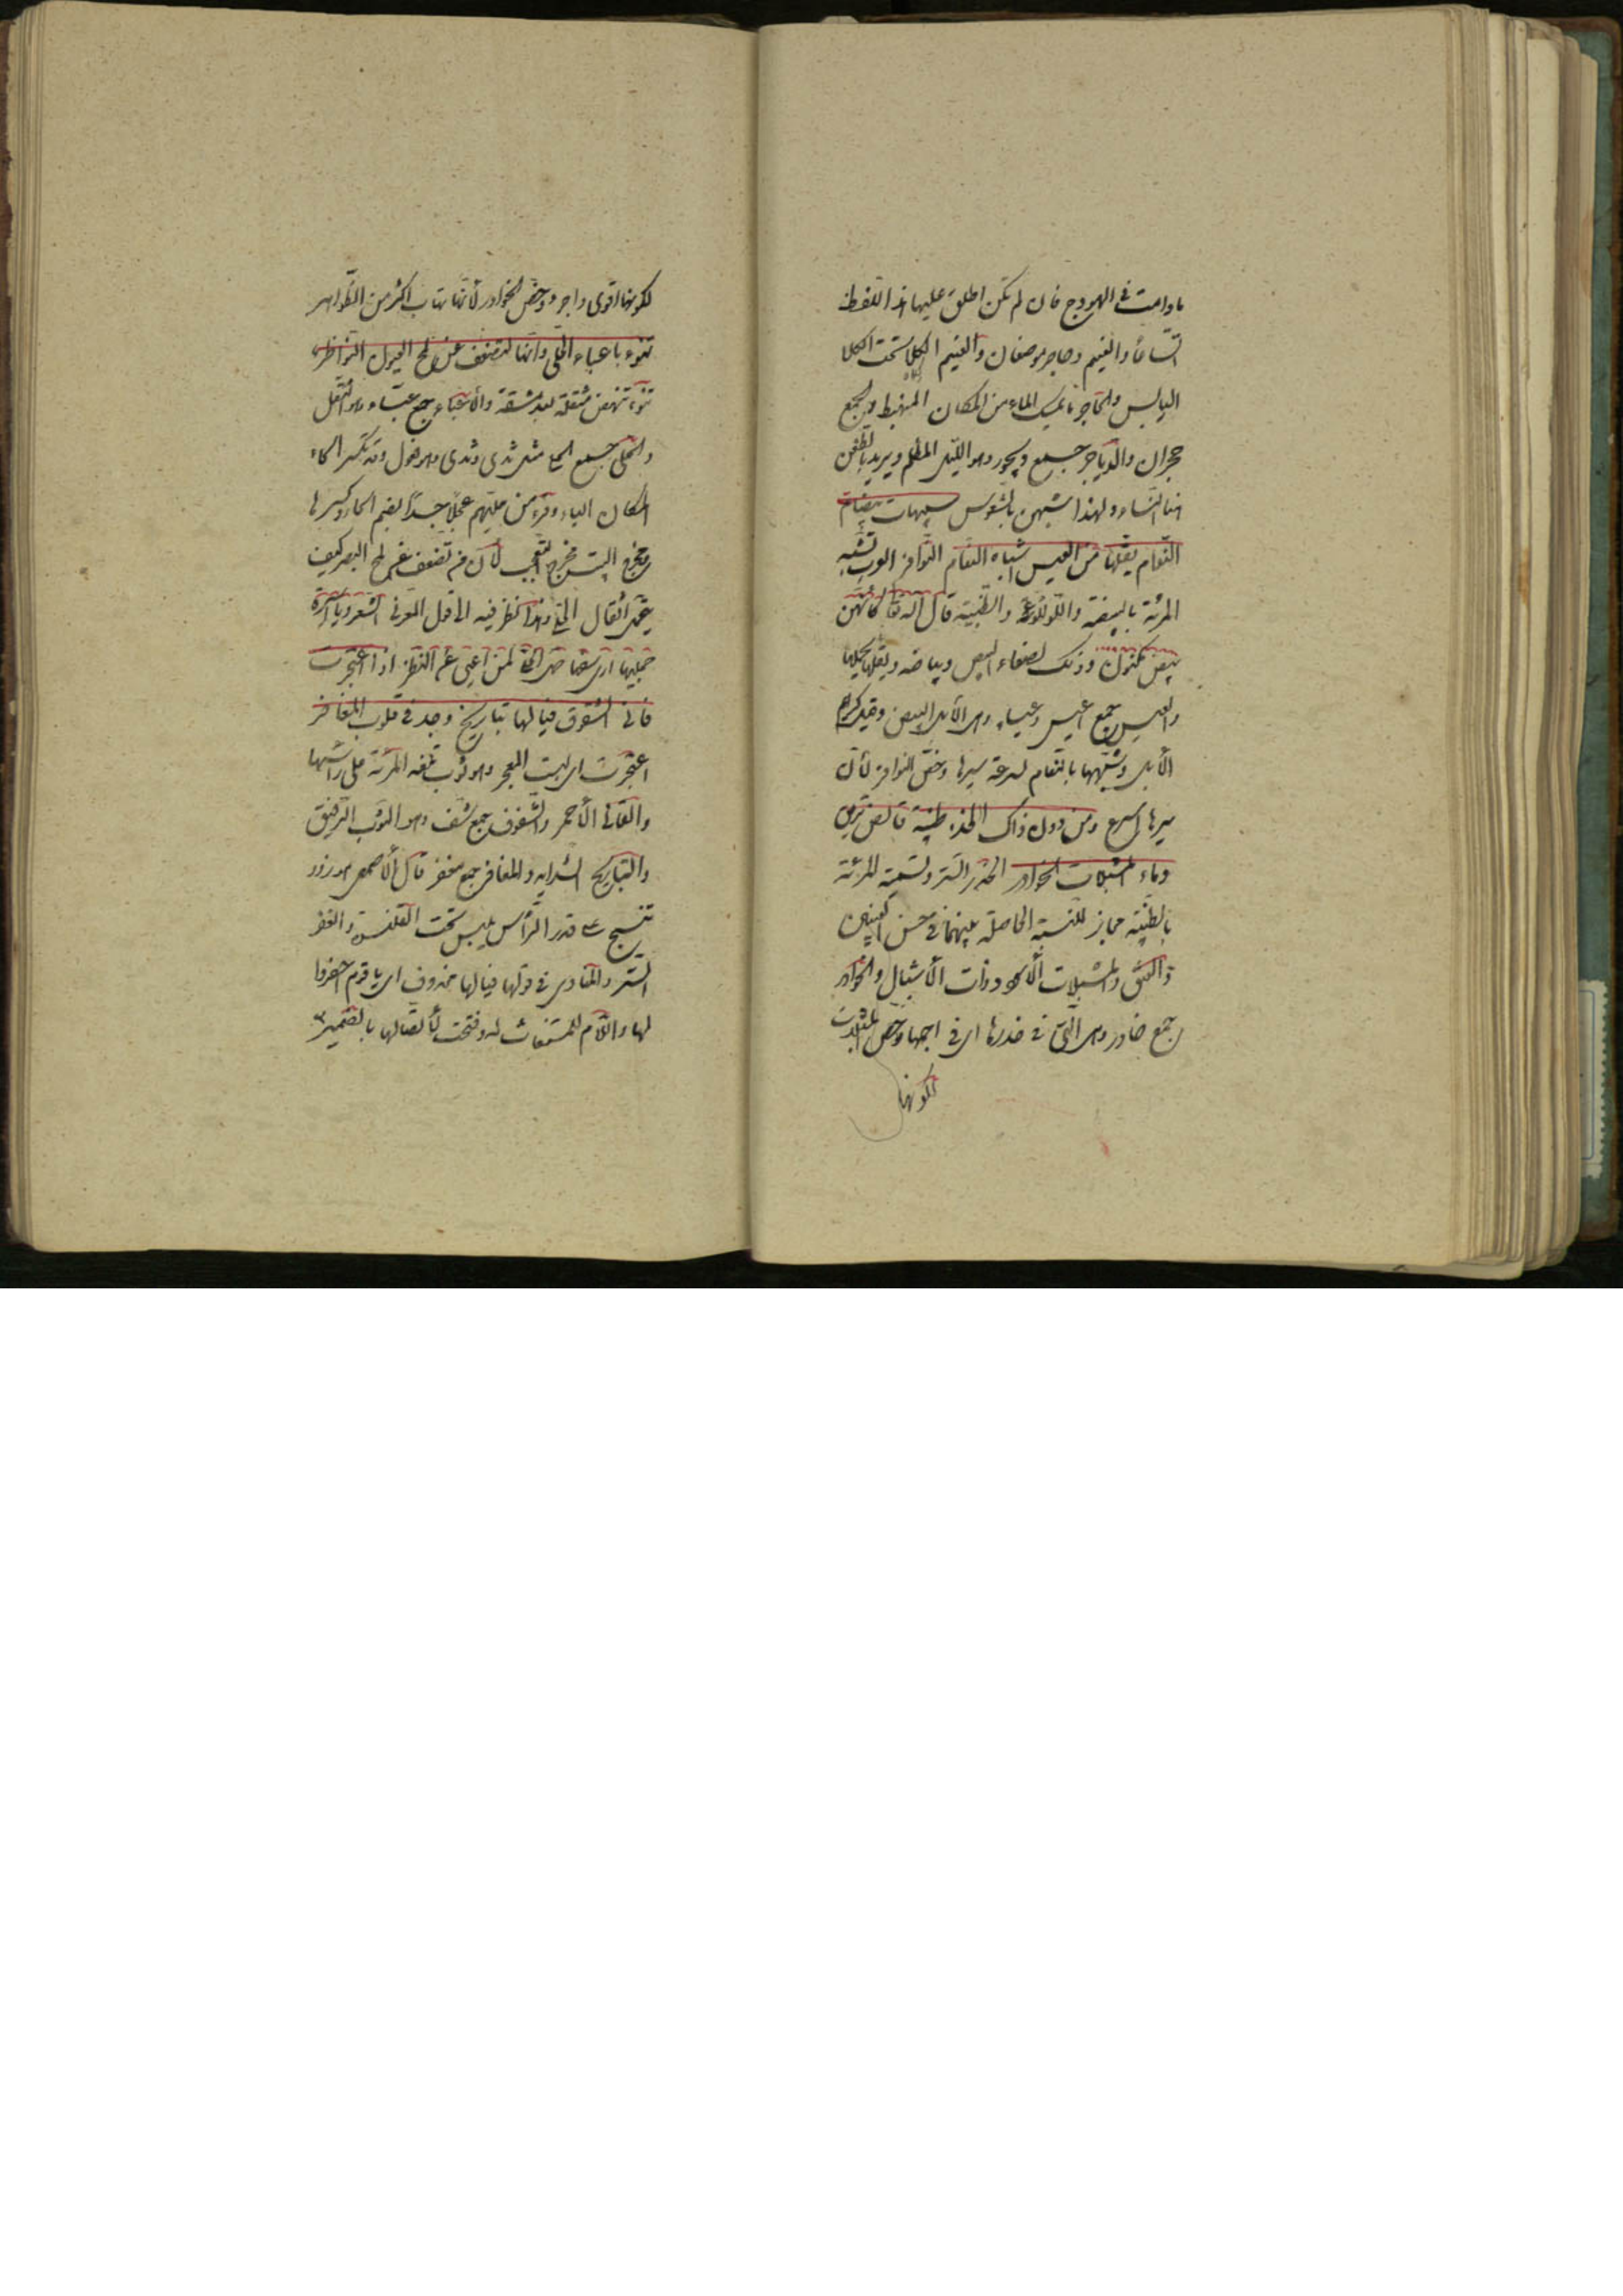 مادامت في الهودج فان لم تكن اطلق عليها هذا اللفظ
اتساعًا والغيم وحاجر موضعان والغيم الكلأ تحت الكلا
اليابس والحاجر ما يمسك الماء من المكان المنهبط والجمع
حجران والدياجر جمع ديجور وهو الليل المظلم ويريد بالظعن
هنا النساء ولهذا شبههن بالشموس شبيهات بيضات
النعام يقلها من العيس اشباه النعام النوافر العرب تشبه
المرئة بالبيضة واللؤلؤة والظبية قال الله تعا كانهن
بيض مكنون وذلك لصفاء البيض وبياضه ويقلها يحملها
والعيس جمع اعيس وعيساء وهي الأبل البيض وقيل كرام
الأبل وشبهها بالنعام لسرعة سيرها وخص النوافر لأن
سيرها اسرع ومن دون ذاك الخدر ظبية قانص تريق
دماء المشبلات الخوادر الخدر الستر وتسمية المرئة
بالظبية مجاز للنسبة الحاصلة بينهما في حسن العينين
والعنق والمشبلات الأسود ذوات الأشبال والخوادر
جمع خادر وهي التي في خدرها اي في اجمها وخص المشبلات
لكونها
لكونها اقوى واجرء وخص الخوادر لأنها تهاب اكثر من الظواهر
تنوء باعباء الحلي وانها لتضعف عن لمح العيون النواظر
تنوء تنهض مثقلة بعد مشقة والأعباء جمع عبأ وهو الثقل
والحلي جمع الحلي مثل ثدي وثدي وهو فعول وقد تكسر الحاء
لمكان الياء وقرء من حليهم عجلا جسدًا بضم الحاء وكسرها
وخرج البيت مخرج التعجب لأن من تضعف عن لمح البصر كيف
يحمل اثقال الحلي وهذا نظر فيه الى قول المعرى الشعر ويا اسيرة
حجليها ارى سفها حمل الحلي لمن اعيى عن النظر اذا اعتجرت
قاني الشفوف فيا لها تباريح وجد في قلوب المغافر
اعتجرت اي لبست المعجر وهو ثوب تلفه المرئة على راسها
والقاني الأحمر والشفوف جمع شف وهو الثوب الرقيق
والتباريح الشدايد والمغافر جمع مغفر قال الأصمعي هو زرد
تنسج على قدر الرأس يلبس تحت القلنسوة والغفر
الستر والمنادى في قولها فيا لها محذوف اي يا قوم احضروا
لها واللام للمستغاث له وفتحت لأتصالها بالضمير